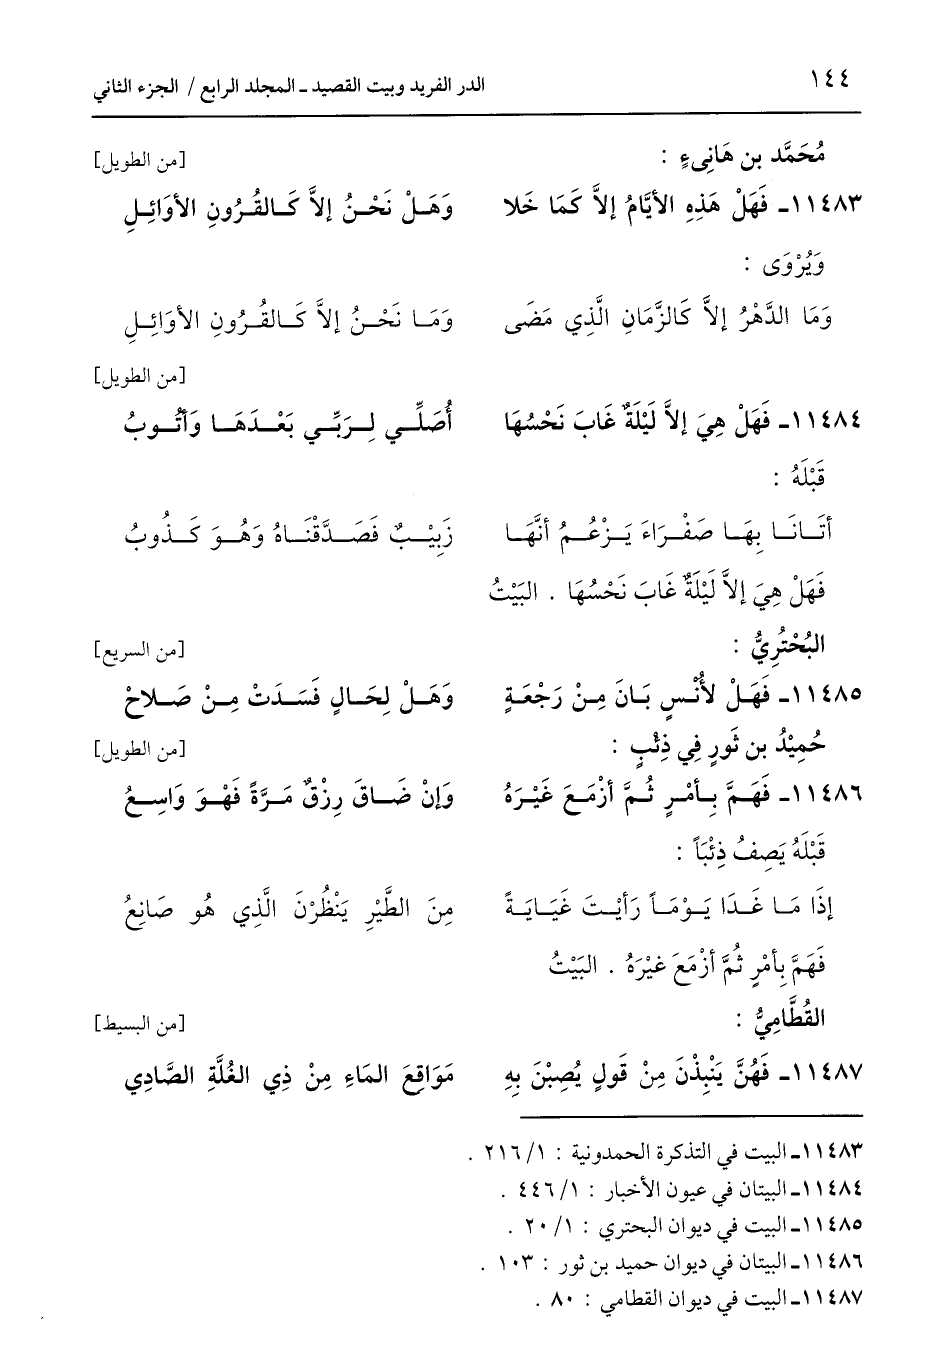 ١٤٤ الدر الفريد وبيت القصيد ـ المجلد الرابع / الجزء الثاني
مُحَمَّد بن هَانِىءٍ : [من الطويل]
١١٤٨٣ـ فَهَلْ هَذِهِ الأيَّامُ إلاَّ كَمَا خَلا وَهَلْ نَحْنُ إلاَّ كَالقُرُونِ الأوَائِلِ
وَيُرْوَى :
وَمَا الدَّهْرُ إلاَّ كَالزَّمَانِ الَّذِي مَضَى وَمَا نَحْنُ إلاَّ كَالقُرُونِ الأوَائِلِ
[من الطويل]
١١٤٨٤ـ فَهَلْ هِيَ إلاَّ لَيْلَةٌ غَابَ نَحْسُهَا أُصَلِّي لِرَبِّي بَعْدَهَا وَأَتُوبُ
قَبْلَهُ :
أتَانَا بِهَا صَفْرَاءَ يَزْعُمُ أنَّهَا زَبِيْبٌ فَصَدَّقْنَاهُ وَهُوَ كَذُوبُ
فَهَلْ هِيَ إلاَّ لَيْلَةٌ غَابَ نَحْسُهَا . البَيْتُ
البُحْتُرِيُّ : [من السريع]
١١٤٨٥ـ فَهَلْ لأُنْسٍ بَانَ مِنْ رَجْعَةٍ وَهَلْ لِحَالٍ فَسَدَتْ مِنْ صَلاحْ
حُمِيْدُ بن ثَورٍ فِي ذِئْبٍ : [من الطويل]
١١٤٨٦ـ فَهَمَّ بِأمْرٍ ثُمَّ أزْمَعَ غَيْرَهُ وَإنْ ضَاقَ رِزْقٌ مَرَّةً فَهْوَ وَاسِعُ
قَبْلَهُ يَصِفُ ذِئْبَاً :
إذَا مَا غَدَا يَوْمَاً رَأيْتَ غَيَايَةً مِنَ الطَّيْرِ يَنْظُرْنَ الَّذِي هُو صَانِعُ
فَهَمَّ بِأمْرٍ ثُمَّ أزْمَعَ غَيْرَهُ . البَيْتُ
القُطَّامِيُّ : [من البسيط]
١١٤٨٧ـ فَهُنَّ يَنْبِذْنَ مِنْ قَولٍ يُصِبْنَ بِهِ مَوَاقِعَ المَاءِ مِنْ ذِي الغُلَّةِ الصَّادِي
١١٤٨٣ـ البيت في التذكرة الحمدونية : ١/ ٢١٦ .
١١٤٨٤ـ البيتان في عيون الأخبار : ١/ ٤٤٦ .
١١٤٨٥ـ البيت في ديوان البحتري : ١/ ٢٠ .
١١٤٨٦ـ البيتان في ديوان حميد بن ثور : ١٠٣ .
١١٤٨٧ـ البيت في ديوان القطامي : ٨٠ .